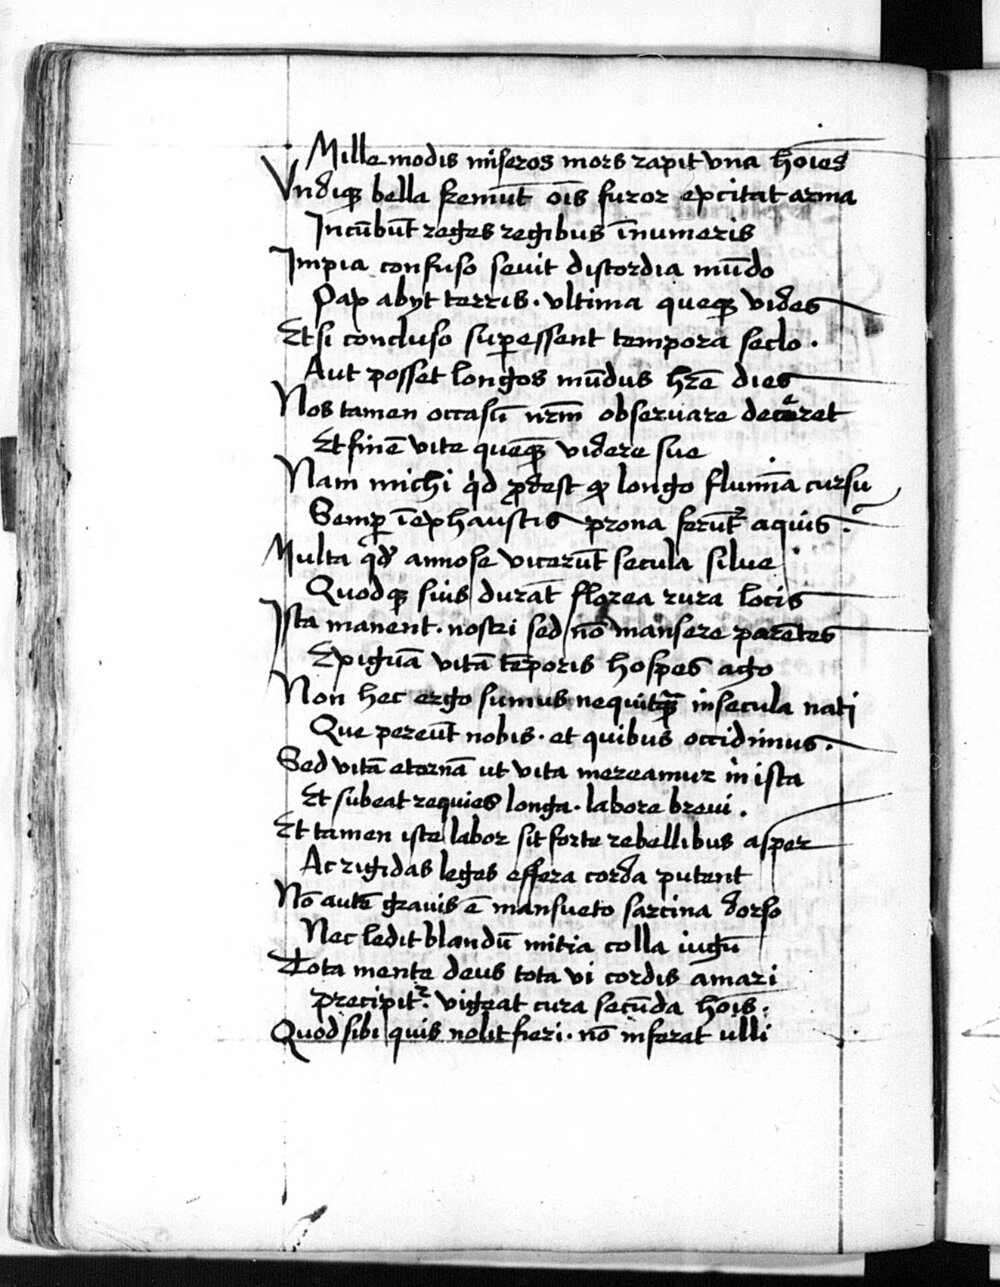 Mille modis miseros mors rapit vna hōies
Vndiqꝫ bella fremūt oīs furor epcitat arma
Incūbūt reges regibus īnumeris
Impia confuso seuit discordia mūdo
Pap abyt terris · vltima queqꝫ vides
Et si concluso suꝑessent tempora seclo ·
Aut posset longos mūdus hr̄e dies
Nos tamen occasū nr̄m obseruare deceret
Et finē vite quēqꝫ videre sue
Nam michi qd ꝓdest qꝫ longo flumīa cursu
Semꝑ īephaustis prona ferūtᷣ aquis ·
Multa qd annose vicerūt secula silue
Quodqꝫ suis durāt florea rura locis
Ista manent · nostri sed nō mansere parētes
Epiguā vitā tēporis hospes ago
Non hec ergo sumus nequitqꝫ in secula nati
Que pereūt nobis · et quibus occidimus ·
Sed vitā eternā ut vita mereamur in ista
Et subeat requies longa · labore breui ·
Et tamen iste labor sit forte rebellibus asper
Ac rigidas leges effera corda putent
Nō autē grauis ē mansueto sarcina dorso
Nec ledit blandū mitia colla iugū
Tota mente deus tota vi cordis amari
precipitᷣ · vigeat cura secūda hoīs ·
Quod sibi quis nolit fieri · nō inferat ulli